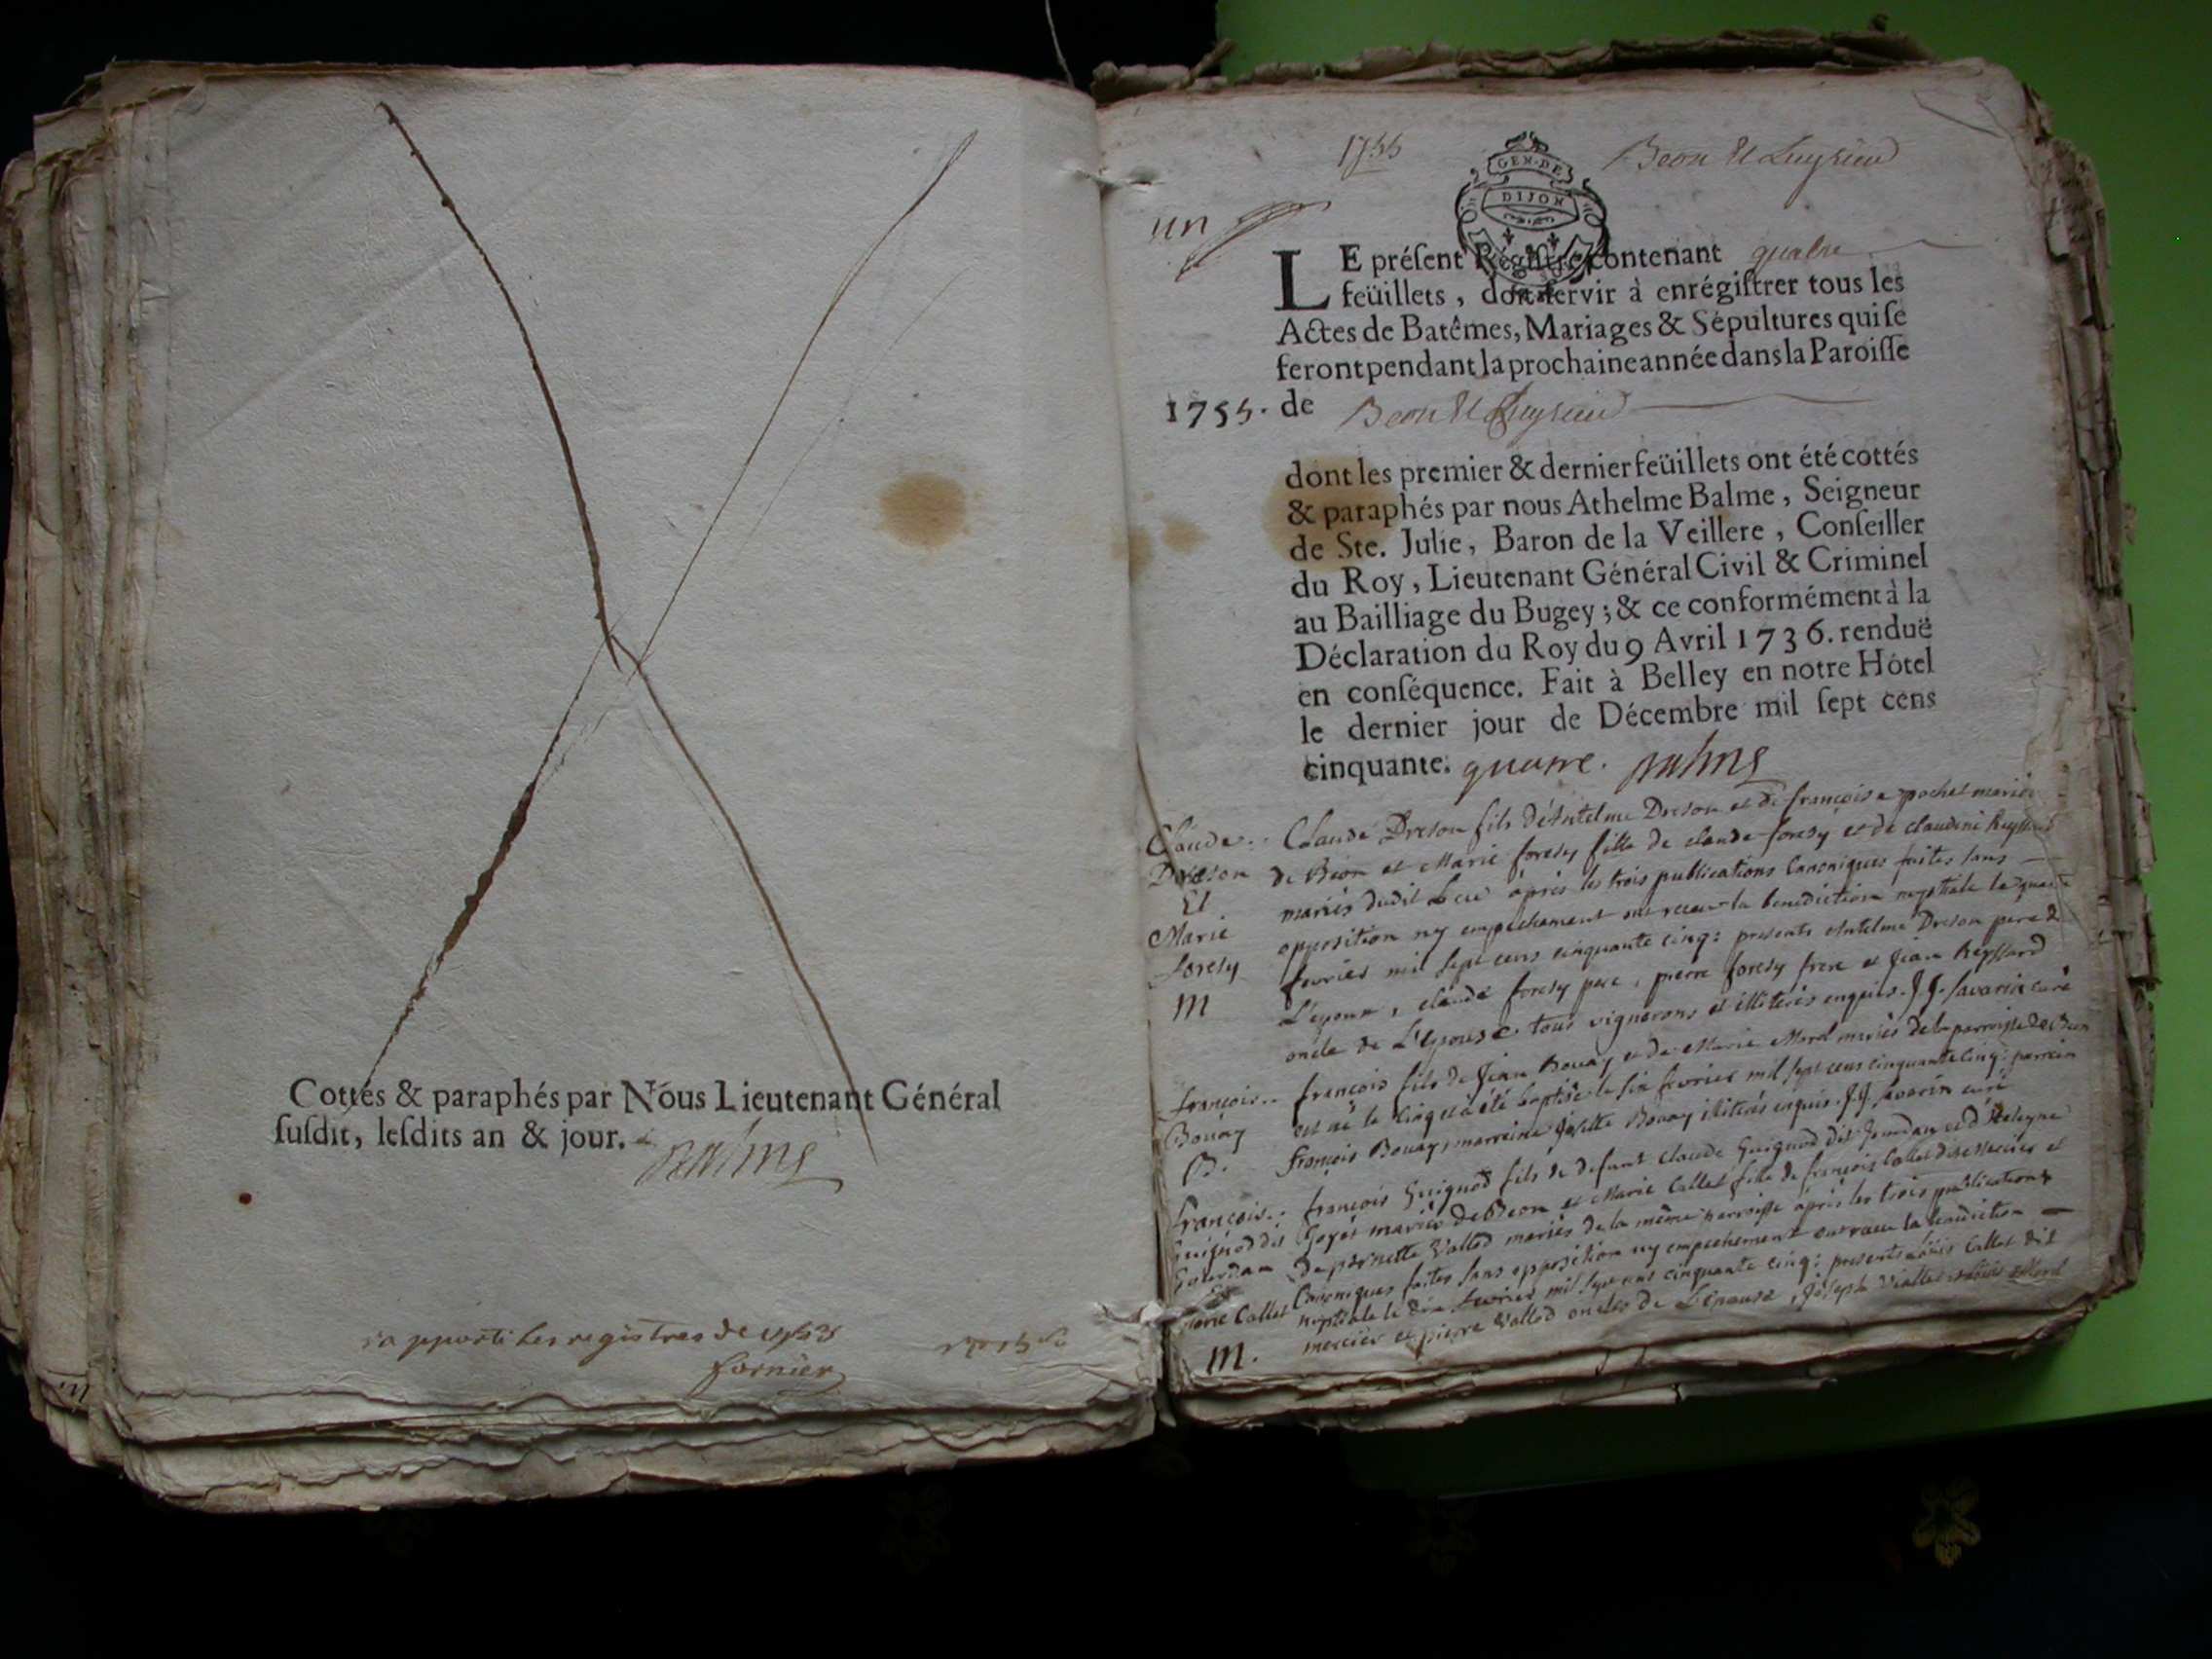 Cottés & paraphés par Nous Lieutenant Général
ſuſdit, leſdits an & jour.
Balme
rapporté les registres de
fornier
1755
Beon et Luyrieu
GEN. DE
DIJON
un
LE préſent Régiſtre contenant quatre
feüillets, doit ſervir à enrégiſtrer tous les
Actes de Batêmes, Mariages & Sépultures qui ſe
feront pendant la prochaine année dans la Paroiſſe
1755. de Beon et Luyrieu
dont les premier & dernier feüillets ont été cottés
& paraphés par nous Athelme Balme, Seigneur
de Ste. Julie, Baron de la Veillere, Conſeiller
du Roy, Lieutenant Général Civil & Criminel
au Bailliage du Bugey; & ce conformément à la
Déclaration du Roy du 9 Avril 1736. renduë
en conſéquence. Fait à Belley en notre Hôtel
le dernier jour de Décembre mil ſept cens
cinquante. quatre. Balme
Claude..
Dreson
Et
Marie
foresy
M
Claude Dreson fils d'Antelme Dreson et de françoise pochet mariés
de Beon et Marie foresy fille de claude foresy et de claudine Reyssard
mariés dudit Lieu après les trois publications Canoniques faites sans
opposition ny empechement ont receu la benediction nuptiale le quatre
fevrier mil sept cens cinquante cinq: presents Antelme Dreson pere de
L'epoux, claude foresy pere, pierre foresy frere et Jean Reyssard
oncle de L'epouse tous vignerons et illiterés enquis. J. J. Savarin curé
françois..
Bouay
B.
françois fils de Jean Bouay et de Marie Morel mariés de la parroisse de Beon
est né le cinq et a été baptisé le six fevrier mil sept cens cinquante cinq: parrein
françois Bouay, marreine Josette Bouay illiterés enquis. J. J. Savarin curé
françois..
Guignod dit
Jourdan
et
Marie Callet
M.
françois Guignod fils de defunt claude Guignod dit Jourdan et d'
Goyet mariés de Beon et Marie Callet fille de françois Callet dit Mercier et
de pernette Vallod mariés de la même parroisse après les trois publications
Canoniques faites sans opposition ny empechement ont receu la benediction
nuptiale le dix fevrier mil sept cens cinquante cinq: presents Loüis Callet dit
mercier et pierre Vallod oncles de L'epouse, Joseph Viallet Morel